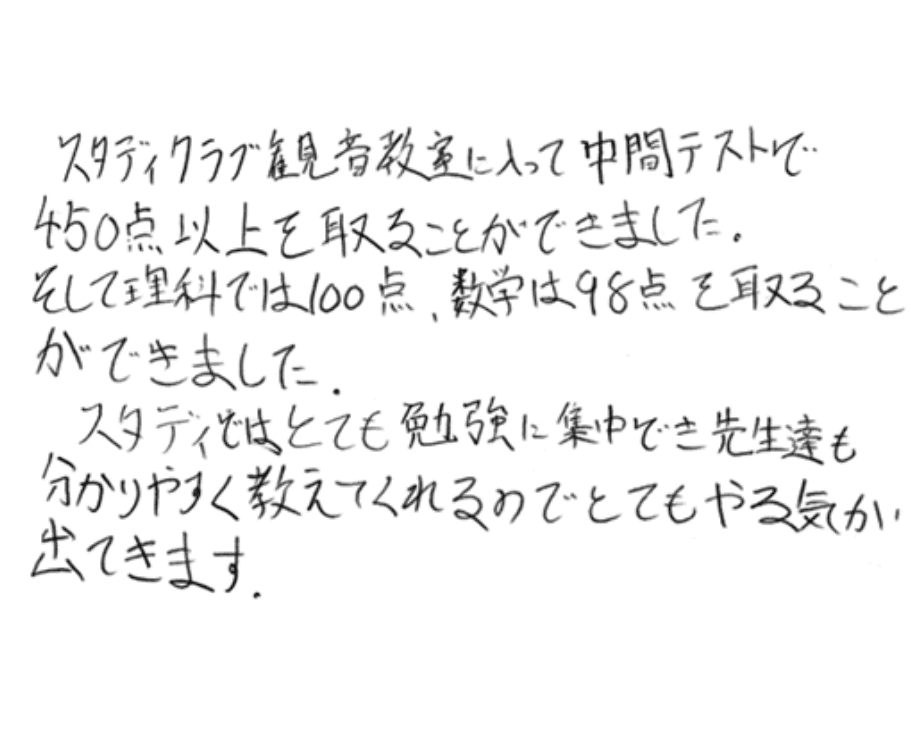 スタディクラブ観音教室に入って中間テストで
450点以上を取ることができました。
そして理科では100点、数学は98点を取ること
ができました。
スタディではとても勉強に集中でき先生達も
分かりやすく教えてくれるのでとてもやる気が
出てきます。